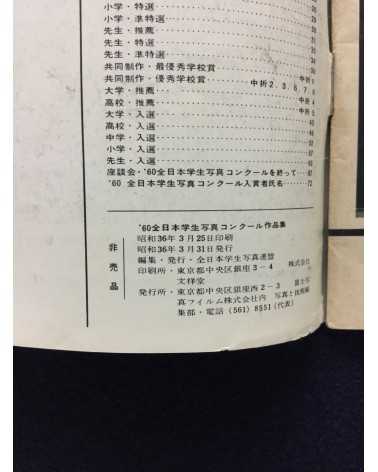 小学・特選
小学・準特選 29
先生・推薦
先生・特選
先生・準特選
共同制作・最優秀学校賞 中折
共同制作・優秀学校賞 中折2.3.6.7.
大学・推薦 中折4
高校・推薦 中折
大学・入選
高校・入選
中学・入選
小学・入選
先生・入選
座談会・'60全日本学生写真コンクールを終って
'60 全日本学生写真コンクール入賞者氏名 72
非売品
'60全日本学生写真コンクール作品集
昭和36年3月25日印刷
昭和36年3月31日発行
編集・発行・全日本学生写真連盟
印刷所・東京都中央区銀座3-4 株式会社
文祥堂
発行所・東京都中央区銀座西2-3 富士写
真フイルム株式会社内 写真と技術編
集部・電話(561)8551(代表)